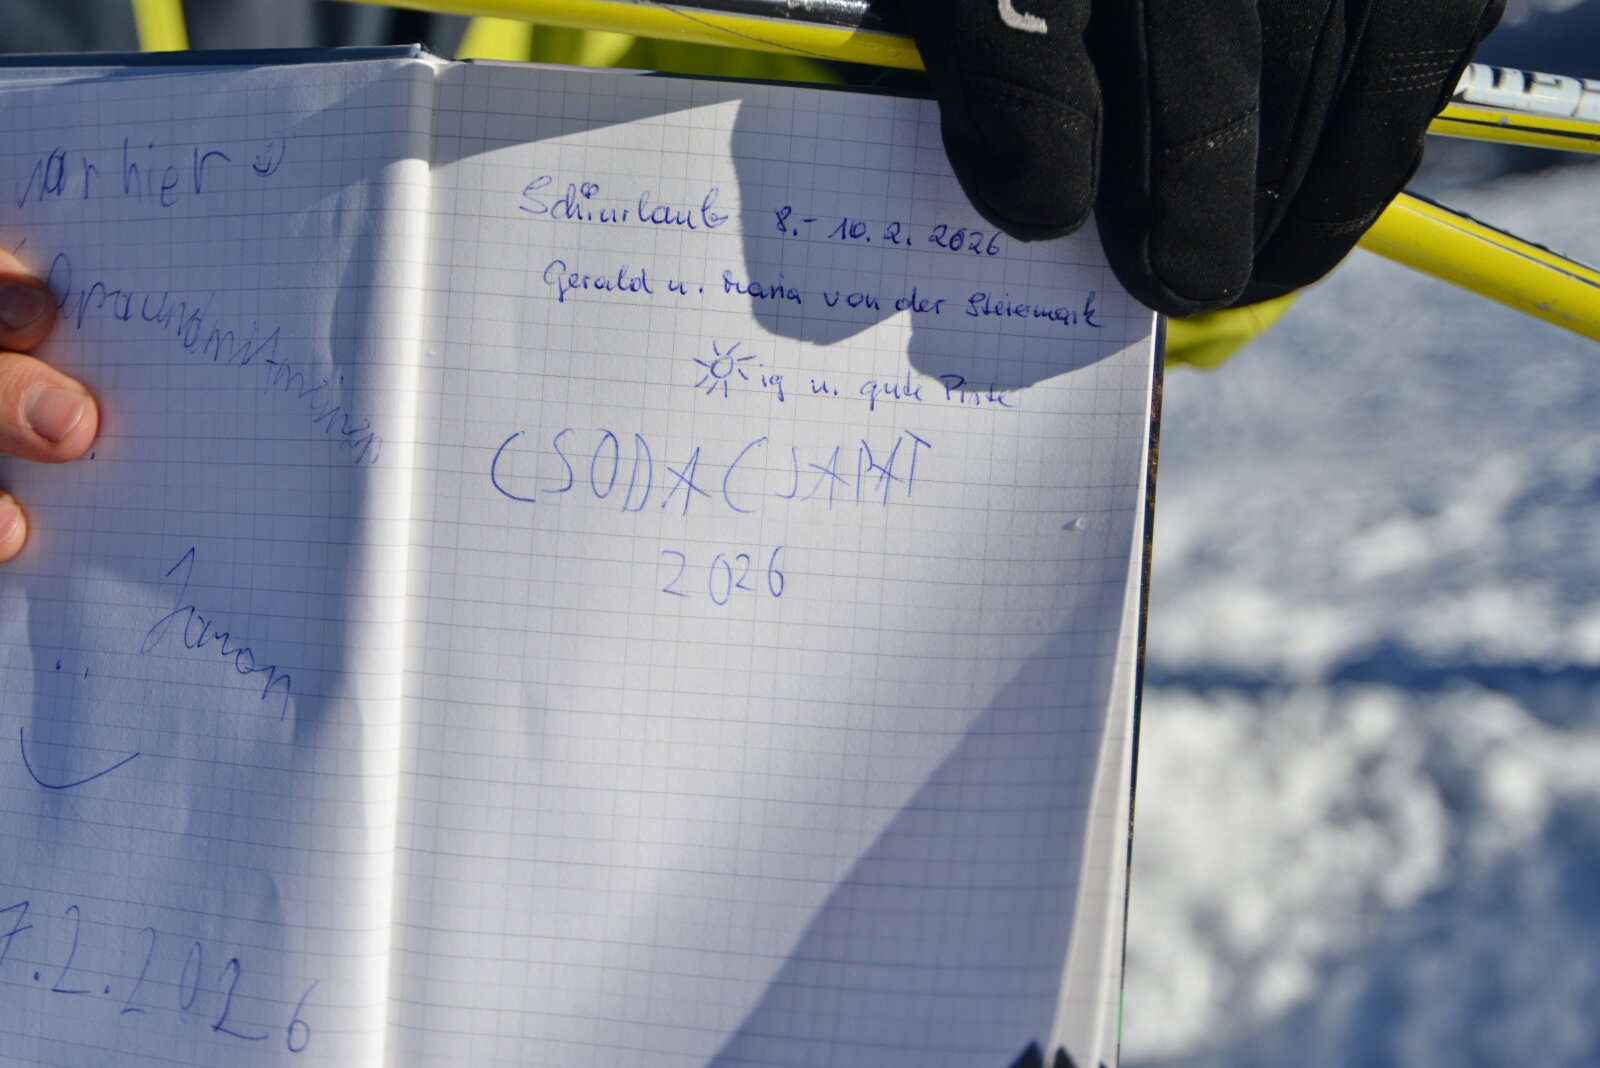 war hier
Jaron
7.2.2026
Schiurlaub 8.- 10.2.2026
Gerald u. Maria von der Steiermark
ig u. gute Piste
CSODACSAPAT
2026